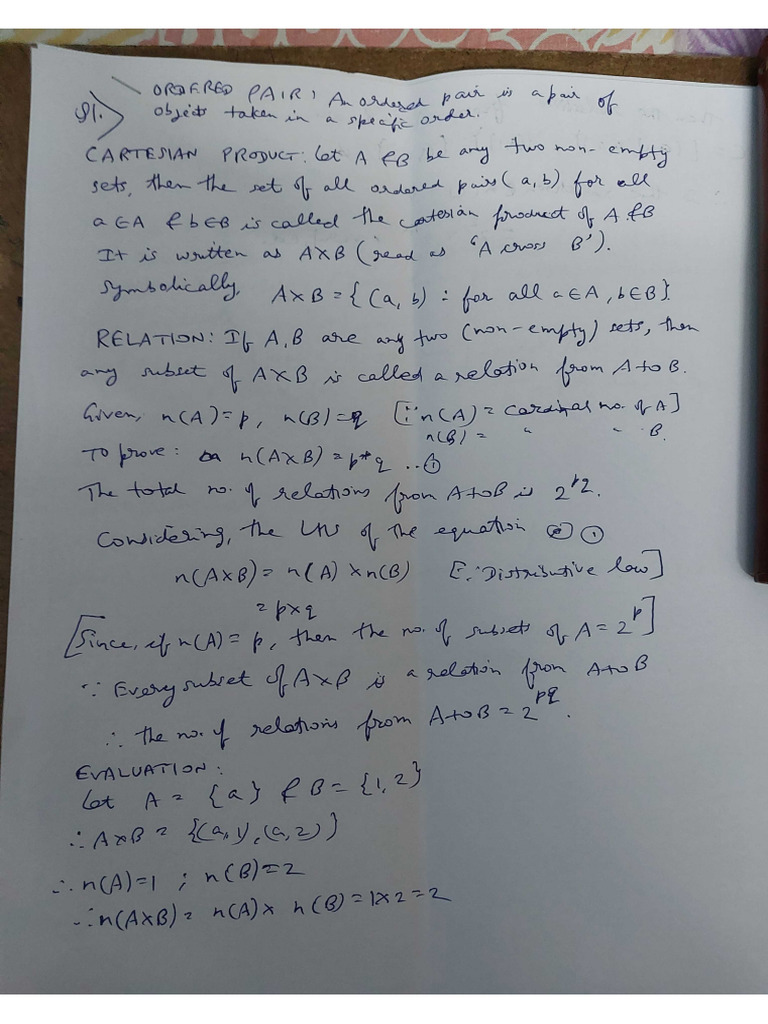 Q1.) ORDERED PAIR: An ordered pair is a pair of
objects taken in a specific order.
CARTESIAN PRODUCT: Let A & B be any two non-empty
sets, then the set of all ordered pairs (a, b) for all
a ∈ A & b ∈ B is called the cartesian product of A & B
It is written as A×B (read as 'A cross B').
Symbolically, A×B = {(a, b) : for all a ∈ A, b ∈ B}.
RELATION: If A, B are any two (non-empty) sets, then
any subset of A×B is called a relation from A to B.
Given, n(A) = p, n(B) = q [∵ n(A) = Cardinal no. of A]
n(B) = " " B.
To prove: n(A×B) = p*q ..①
The total no. of relations from A to B is 2^pq.
Considering, the LHS of the equation ①
n(A×B) = n(A) × n(B) [∵ Distributive law]
= p×q
[Since, if n(A) = p, then the no. of subsets of A = 2^p]
∵ Every subset of A×B is a relation from A to B
∴ the no. of relations from A to B = 2^pq.
EVALUATION:
Let A = {a} & B = {1, 2}
∴ A×B = {(a, 1), (a, 2)}
∴ n(A) = 1 ; n(B) = 2
∴ n(A×B) = n(A) × n(B) = 1×2 = 2